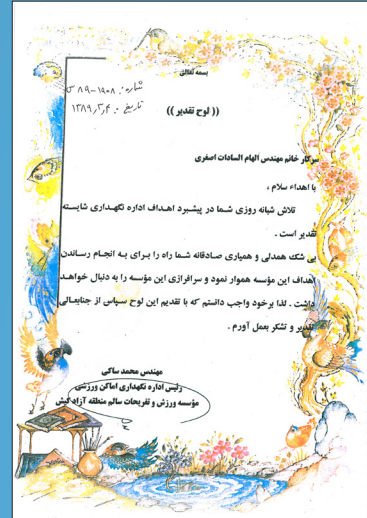 بسمه تعالی
شماره: ۱۹۰۸-۸۹ س
تاریخ: ۱۳۸۹٫۳٫۴
(( لوح تقدیر ))
سرکار خانم مهندس الهام السادات اصغری
با اهداء سلام ،
تلاش شبانه روزی شما در پیشبرد اهداف اداره نگهداری شایسته
تقدیر است .
بی شک همدلی و همیاری صادقانه شما راه را برای به انجام رساندن
اهداف این مؤسسه هموار نمود و سرافرازی این مؤسسه را به دنبال خواهد
داشت . لذا برخود واجب دانستم که با تقدیم این لوح سپاس از جنابعالی
تقدیر و تشکر بعمل آورم .
مهندس محمد ساکی
رئیس اداره نگهداری اماکن ورزشی
مؤسسه ورزش و تفریحات سالم منطقه آزاد کیش